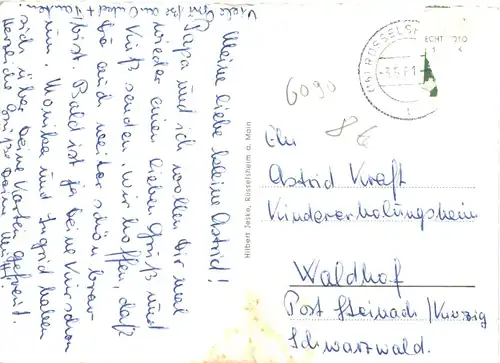 Viele Grüße an Onkel + Tanten!
Meine liebe kleine Astrid!
Papa und ich wollen Dir mal
wieder einen lieben Gruß und
Kuß senden. Wir hoffen, daß
Du auch weiter schön brav
bist. Bald ist ja Deine Kur schon
um. Monika und Ingrid haben
sich über Deine Karten gefreut.
Herzliche Grüße Deine Mutti
Hilbert Jeske, Rüsselsheim a. Main
RÜSSELSH
ECHT FOTO
6090
An
Astrid Kraft
Kindererholungsheim
Waldhof
Post Steinach/Kinzig
Schwarzwald.